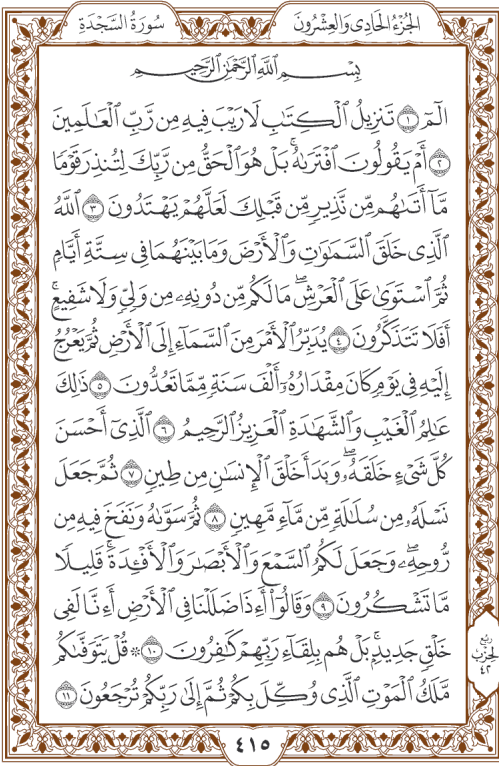 الجُزْءُ الحَادِى وَالعِشْرُونَ
سُورَةُ السَّجْدَةِ
بِسْمِ اللَّهِ الرَّحْمَٰنِ الرَّحِيمِ
الٓمٓ ١ تَنزِيلُ الْكِتَٰبِ لَا رَيْبَ فِيهِ مِن رَّبِّ الْعَٰلَمِينَ
٢ أَمْ يَقُولُونَ افْتَرَىٰهُ ۚ بَلْ هُوَ الْحَقُّ مِن رَّبِّكَ لِتُنذِرَ قَوْمًا
مَّآ أَتَىٰهُم مِّن نَّذِيرٍ مِّن قَبْلِكَ لَعَلَّهُمْ يَهْتَدُونَ ٣ اللَّهُ
الَّذِى خَلَقَ السَّمَٰوَٰتِ وَالْأَرْضَ وَمَا بَيْنَهُمَا فِى سِتَّةِ أَيَّامٍ
ثُمَّ اسْتَوَىٰ عَلَى الْعَرْشِ ۖ مَا لَكُم مِّن دُونِهِۦ مِن وَلِىٍّ وَلَا شَفِيعٍ ۚ
أَفَلَا تَتَذَكَّرُونَ ٤ يُدَبِّرُ الْأَمْرَ مِنَ السَّمَآءِ إِلَى الْأَرْضِ ثُمَّ يَعْرُجُ
إِلَيْهِ فِى يَوْمٍ كَانَ مِقْدَارُهُۥٓ أَلْفَ سَنَةٍ مِّمَّا تَعُدُّونَ ٥ ذَٰلِكَ
عَٰلِمُ الْغَيْبِ وَالشَّهَٰدَةِ الْعَزِيزُ الرَّحِيمُ ٦ الَّذِىٓ أَحْسَنَ
كُلَّ شَىْءٍ خَلَقَهُۥ ۖ وَبَدَأَ خَلْقَ الْإِنسَٰنِ مِن طِينٍ ٧ ثُمَّ جَعَلَ
نَسْلَهُۥ مِن سُلَٰلَةٍ مِّن مَّآءٍ مَّهِينٍ ٨ ثُمَّ سَوَّىٰهُ وَنَفَخَ فِيهِ مِن
رُّوحِهِۦ ۖ وَجَعَلَ لَكُمُ السَّمْعَ وَالْأَبْصَٰرَ وَالْأَفْـِٔدَةَ ۚ قَلِيلًا
مَّا تَشْكُرُونَ ٩ وَقَالُوٓا۟ أَءِذَا ضَلَلْنَا فِى الْأَرْضِ أَءِنَّا لَفِى
خَلْقٍ جَدِيدٍۭ ۚ بَلْ هُم بِلِقَآءِ رَبِّهِمْ كَٰفِرُونَ ١٠ ۞ قُلْ يَتَوَفَّىٰكُم
مَّلَكُ الْمَوْتِ الَّذِى وُكِّلَ بِكُمْ ثُمَّ إِلَىٰ رَبِّكُمْ تُرْجَعُونَ ١١
ربع
الحزب
٤٢
٤١٥